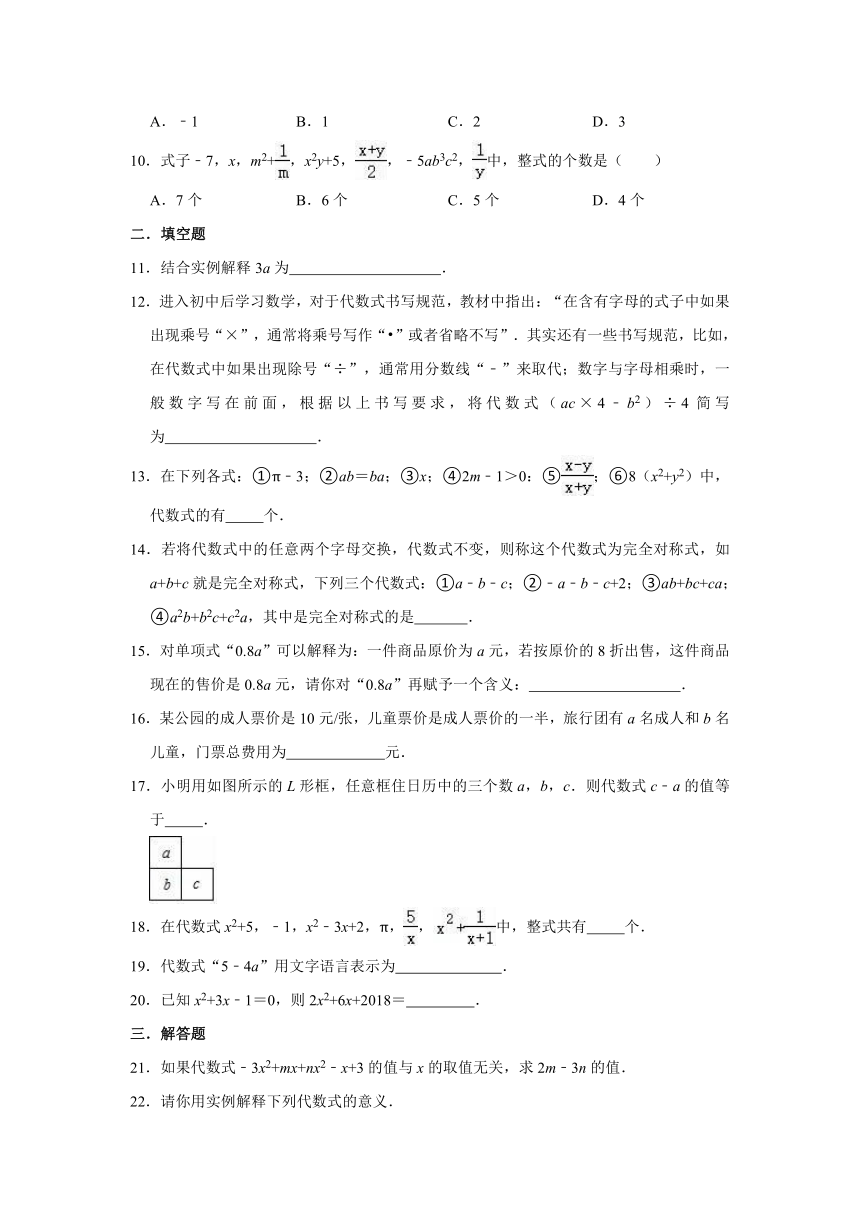 A．﹣1 B．1 C．2 D．3
10．式子﹣7，x，m²+1/m，x²y+5，(x+y)/2，﹣5ab³c²，1/y中，整式的个数是（　　）
A．7个 B．6个 C．5个 D．4个
二．填空题
11．结合实例解释3a为　　　．
12．进入初中后学习数学，对于代数式书写规范，教材中指出：“在含有字母的式子中如果
出现乘号“×”，通常将乘号写作“•”或者省略不写”．其实还有一些书写规范，比如，
在代数式中如果出现除号“÷”，通常用分数线“﹣”来取代；数字与字母相乘时，一
般数字写在前面，根据以上书写要求，将代数式（ac×4﹣b²）÷4简写
为　　　．
13．在下列各式：①π﹣3；②ab＝ba；③x；④2m﹣1＞0：⑤(x-y)/(x+y)；⑥8（x²+y²）中，
代数式的有　　　个．
14．若将代数式中的任意两个字母交换，代数式不变，则称这个代数式为完全对称式，如
a+b+c就是完全对称式，下列三个代数式：①a﹣b﹣c；②﹣a﹣b﹣c+2；③ab+bc+ca；
④a²b+b²c+c²a，其中是完全对称式的是　　　．
15．对单项式“0.8a”可以解释为：一件商品原价为a元，若按原价的8折出售，这件商品
现在的售价是0.8a元，请你对“0.8a”再赋予一个含义：　　　．
16．某公园的成人票价是10元/张，儿童票价是成人票价的一半，旅行团有a名成人和b名
儿童，门票总费用为　　　元．
17．小明用如图所示的L形框，任意框住日历中的三个数a，b，c．则代数式c﹣a的值等
于　　　．
a
b c
18．在代数式x²+5，﹣1，x²﹣3x+2，π，5/x，x²+1/(x+1)中，整式共有　　　个．
19．代数式“5﹣4a”用文字语言表示为　　　．
20．已知x²+3x﹣1＝0，则2x²+6x+2018＝　　　．
三．解答题
21．如果代数式﹣3x²+mx+nx²﹣x+3的值与x的取值无关，求2m﹣3n的值．
22．请你用实例解释下列代数式的意义．